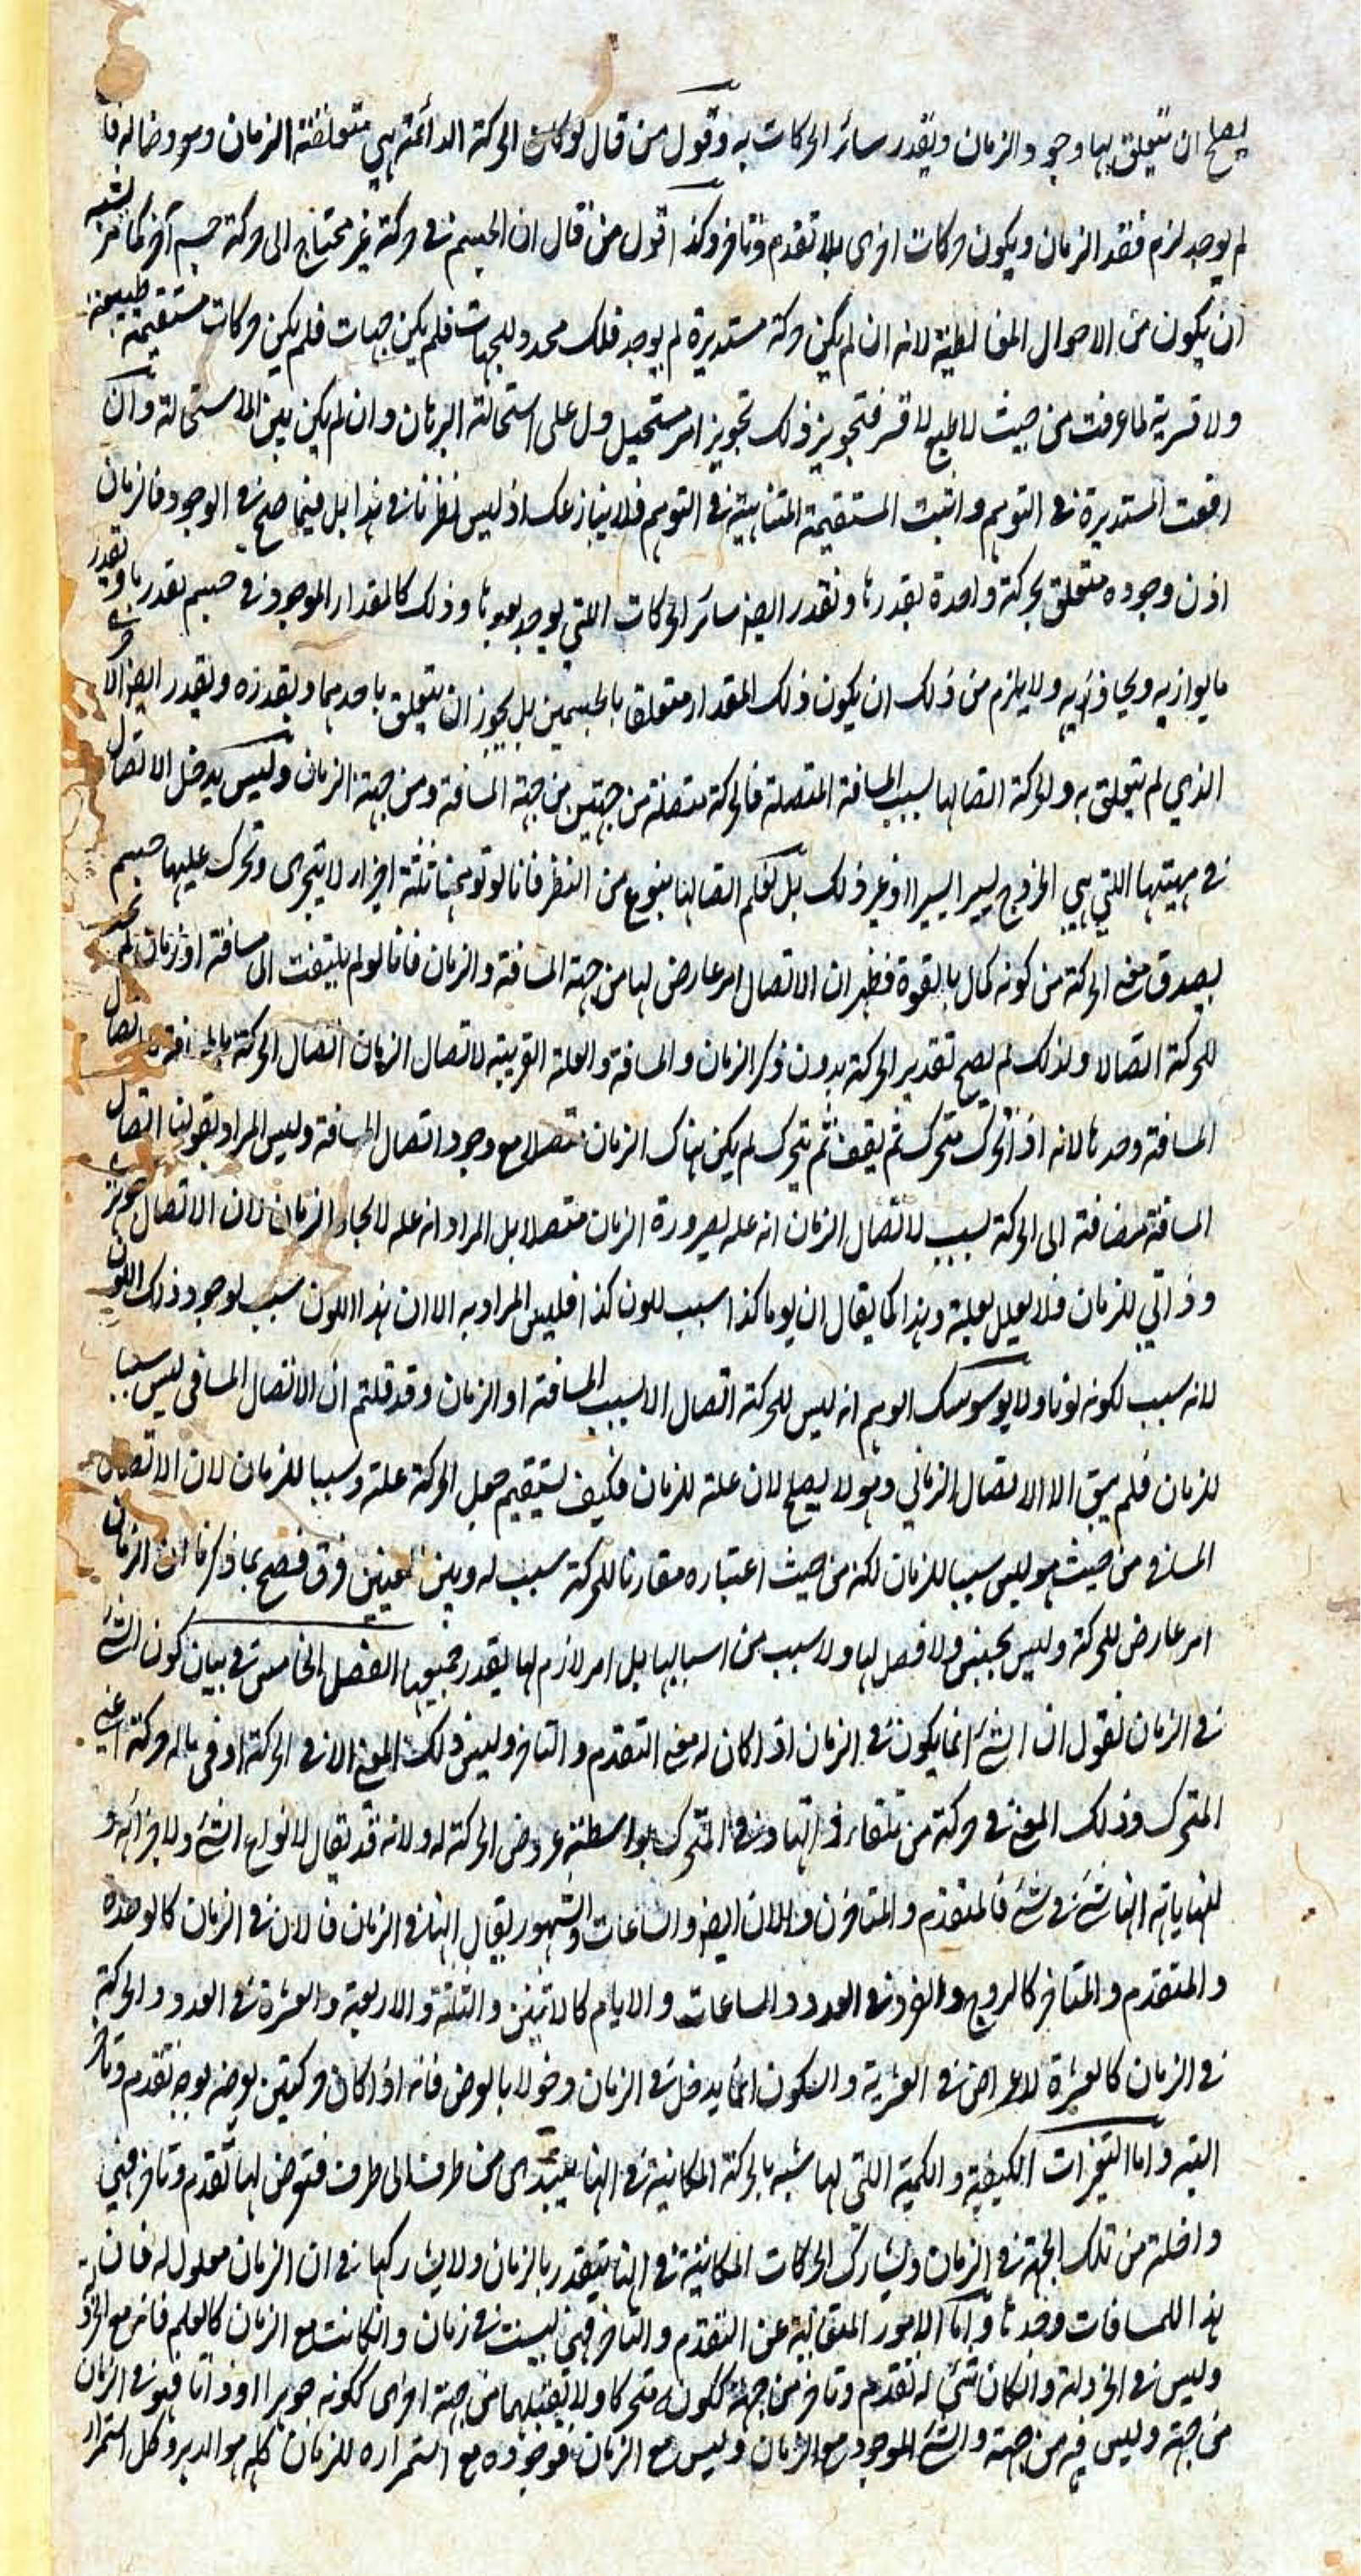 يصلح ان يتعلق بها وجود الزمان ويقدر سائر الحركات به وقول من قال لو كانت الحركة الدائمة هي متعلقة الزمان ومعروضا له فا
لم يوجد لزم فقد الزمان ويكون حركات اخرى بلا تقدم وتاخر وكذا قول من قال ان الجسم في حركة غير محتاج الى حركة جسم آخر كما مر يشبه
ان يكون من الاحوال المغالطية لانه ان لم يكن حركة مستديرة لم يوجد فلك محدد للجهات فلم يكن جهات فلم يكن حركات مستقيمة طبيعية
ولا قسرية لما عرفت من حيث لا طبع لا قسر فتجويز ذلك تجويز امر مستحيل دل على استحالته البرهان وان لم يكن بين الاستحالة وان
رفعت المستديرة في التوهم واثبت المستقيمة المتناهية في التوهم فلا ينازعك اذ ليس نظرنا في هذا بل فيما صح في الوجود فالزمان
اذن وجوده متعلق بحركة واحدة يقدرها ويقدر ايضا سائر الحركات اللتي يوجد بعدها وذلك كالمقدار الموجود في جسم يقدرها ويقدر
ما يوازيه ويحاذيه ولا يلزم من ذلك ان يكون ذلك المقدار متعلقا بالجسمين بل يجوز ان يتعلق باحدهما ويقدره ويقدر ايضا الاخر
الذي لم يتعلق به والحركة اتصالها بسبب المسافة المتصلة فالحركة متصلة من جهتين من جهة المسافة ومن جهة الزمان وليس يدخل الاتصال
في مهيتها اللتي هي الخروج يسيرا يسيرا او غير ذلك بل تعلم اتصالها بنوع من النظر فانا لو توهمنا ثلثة اجزاء لا يتجزى وتحرك عليها جسم
يصدق معنى الحركة من كونه كمال بالقوة فظهر ان الاتصال امر عارض لها من جهة المسافة والزمان فانا لو لم يلتفت الى مسافة او زمان لم نجد
للحركة اتصالا ولذلك لم يصح تقدير الحركة بدون ذكر الزمان والمسافة والعلة القريبة لاتصال الزمان اتصال الحركة بالمسافة لا اتصال
المسافة وحدها لانه اذا تحرك متحرك ثم يقف ثم يتحرك لم يكن هناك الزمان متصلا مع وجود اتصال المسافة وليس المراد بقولنا اتصال
المسافة مضافة الى الحركة سبب لاتصال الزمان انه علة لصيرورة الزمان متصلا بل المراد انه علة لايجاد الزمان لان الاتصال جوهري
وذاتي للزمان فلا يعلل بعلة وهذا كما يقال ان يوما كذا سبب للون كذا فليس المراد به الا ان هذا اللون سبب لوجود ذلك اللون
لانه سبب لكونه لونا ولا يوسوسك الوهم انه ليس للحركة اتصال الا بسبب المسافة او الزمان وقد قلتم ان الاتصال المسافي ليس سببا
للزمان فلم يبق الا الاتصال الزماني وهو لا يصلح لان علة للزمان فكيف يستقيم جعل الحركة علة وسببا للزمان لان الاتصال
المسافي من حيث هو ليس سببا للزمان لكنه من حيث اعتباره مقارنا للحركة سبب له وبين المعنيين فرق فصح بما ذكرنا ان الزمان
امر عارض للحركة وليس بجنس ولا فصل لها ولا سبب من اسبابها بل امر لازم لها يقدر جميعها الفصل الخامس في بيان كون الشئ
في الزمان نقول ان الشئ انما يكون في الزمان اذا كان له معنى التقدم والتاخر وليس ذلك المعنى الا في الحركة او في ما له حركة اعني
المتحرك وذلك المعنى في حركة من تلقاء ذاتها وفي المتحرك بواسطة عروض الحركة له ولانه قد يقال لانواع الشئ ولاجزائه و
لنهاياته انها شئ في شئ فالمتقدم والمتاخر والآن ايضا والساعات والشهور يقال انها في الزمان فالآن في الزمان كالوحدة
والمتقدم والمتاخر كالزوج والفرد في العدد والساعات والايام كالاثنين والثلثة والاربعة والعشرة في العدد والحركة
في الزمان كالعشرة لاعراض في العشرية والسكون انما يدخل في الزمان دخولا بالعرض فانه اذا كان حركتين يعرضه بوجه تقدم وتاخر
البته واما التغيرات الكيفية والكمية اللتي لها شبه بالحركة المكانية في انها يبتدى من طرف الى طرف فتعرض لها تقدم وتاخر فهي
داخلة من تلك الجهة في الزمان ويشارك الحركات المكانية في انها يتقدر بالزمان ولا يشاركها في ان الزمان معلول له فان
هذا للمسافات وحدها واما الامور المتعالية عن التقدم والتاخر فهي ليست في زمان وانكانت مع الزمان كالعلم فانه مع الخردلة
وليس في الخردلة وانكان شئ له تقدم وتاخر من جهة ككونه متحركا ولا تقبلهما من جهة اخرى ككونه جوهرا او ذاتا فهو في الزمان
من جهة وليس فيه من جهة والشئ الموجود مع الزمان وليس مع الزمان فوجوده مع استمراره للزمان كله هو الدهر وكل استمرار